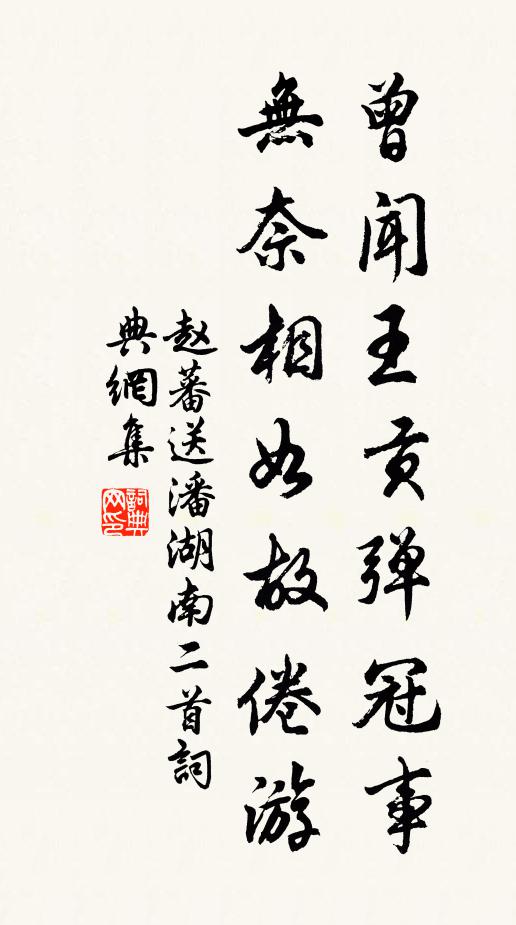 曾闻王贡弹冠事
無奈相如故倦游
赵蕃送潘湖南二首詞
典網集
詞典网印